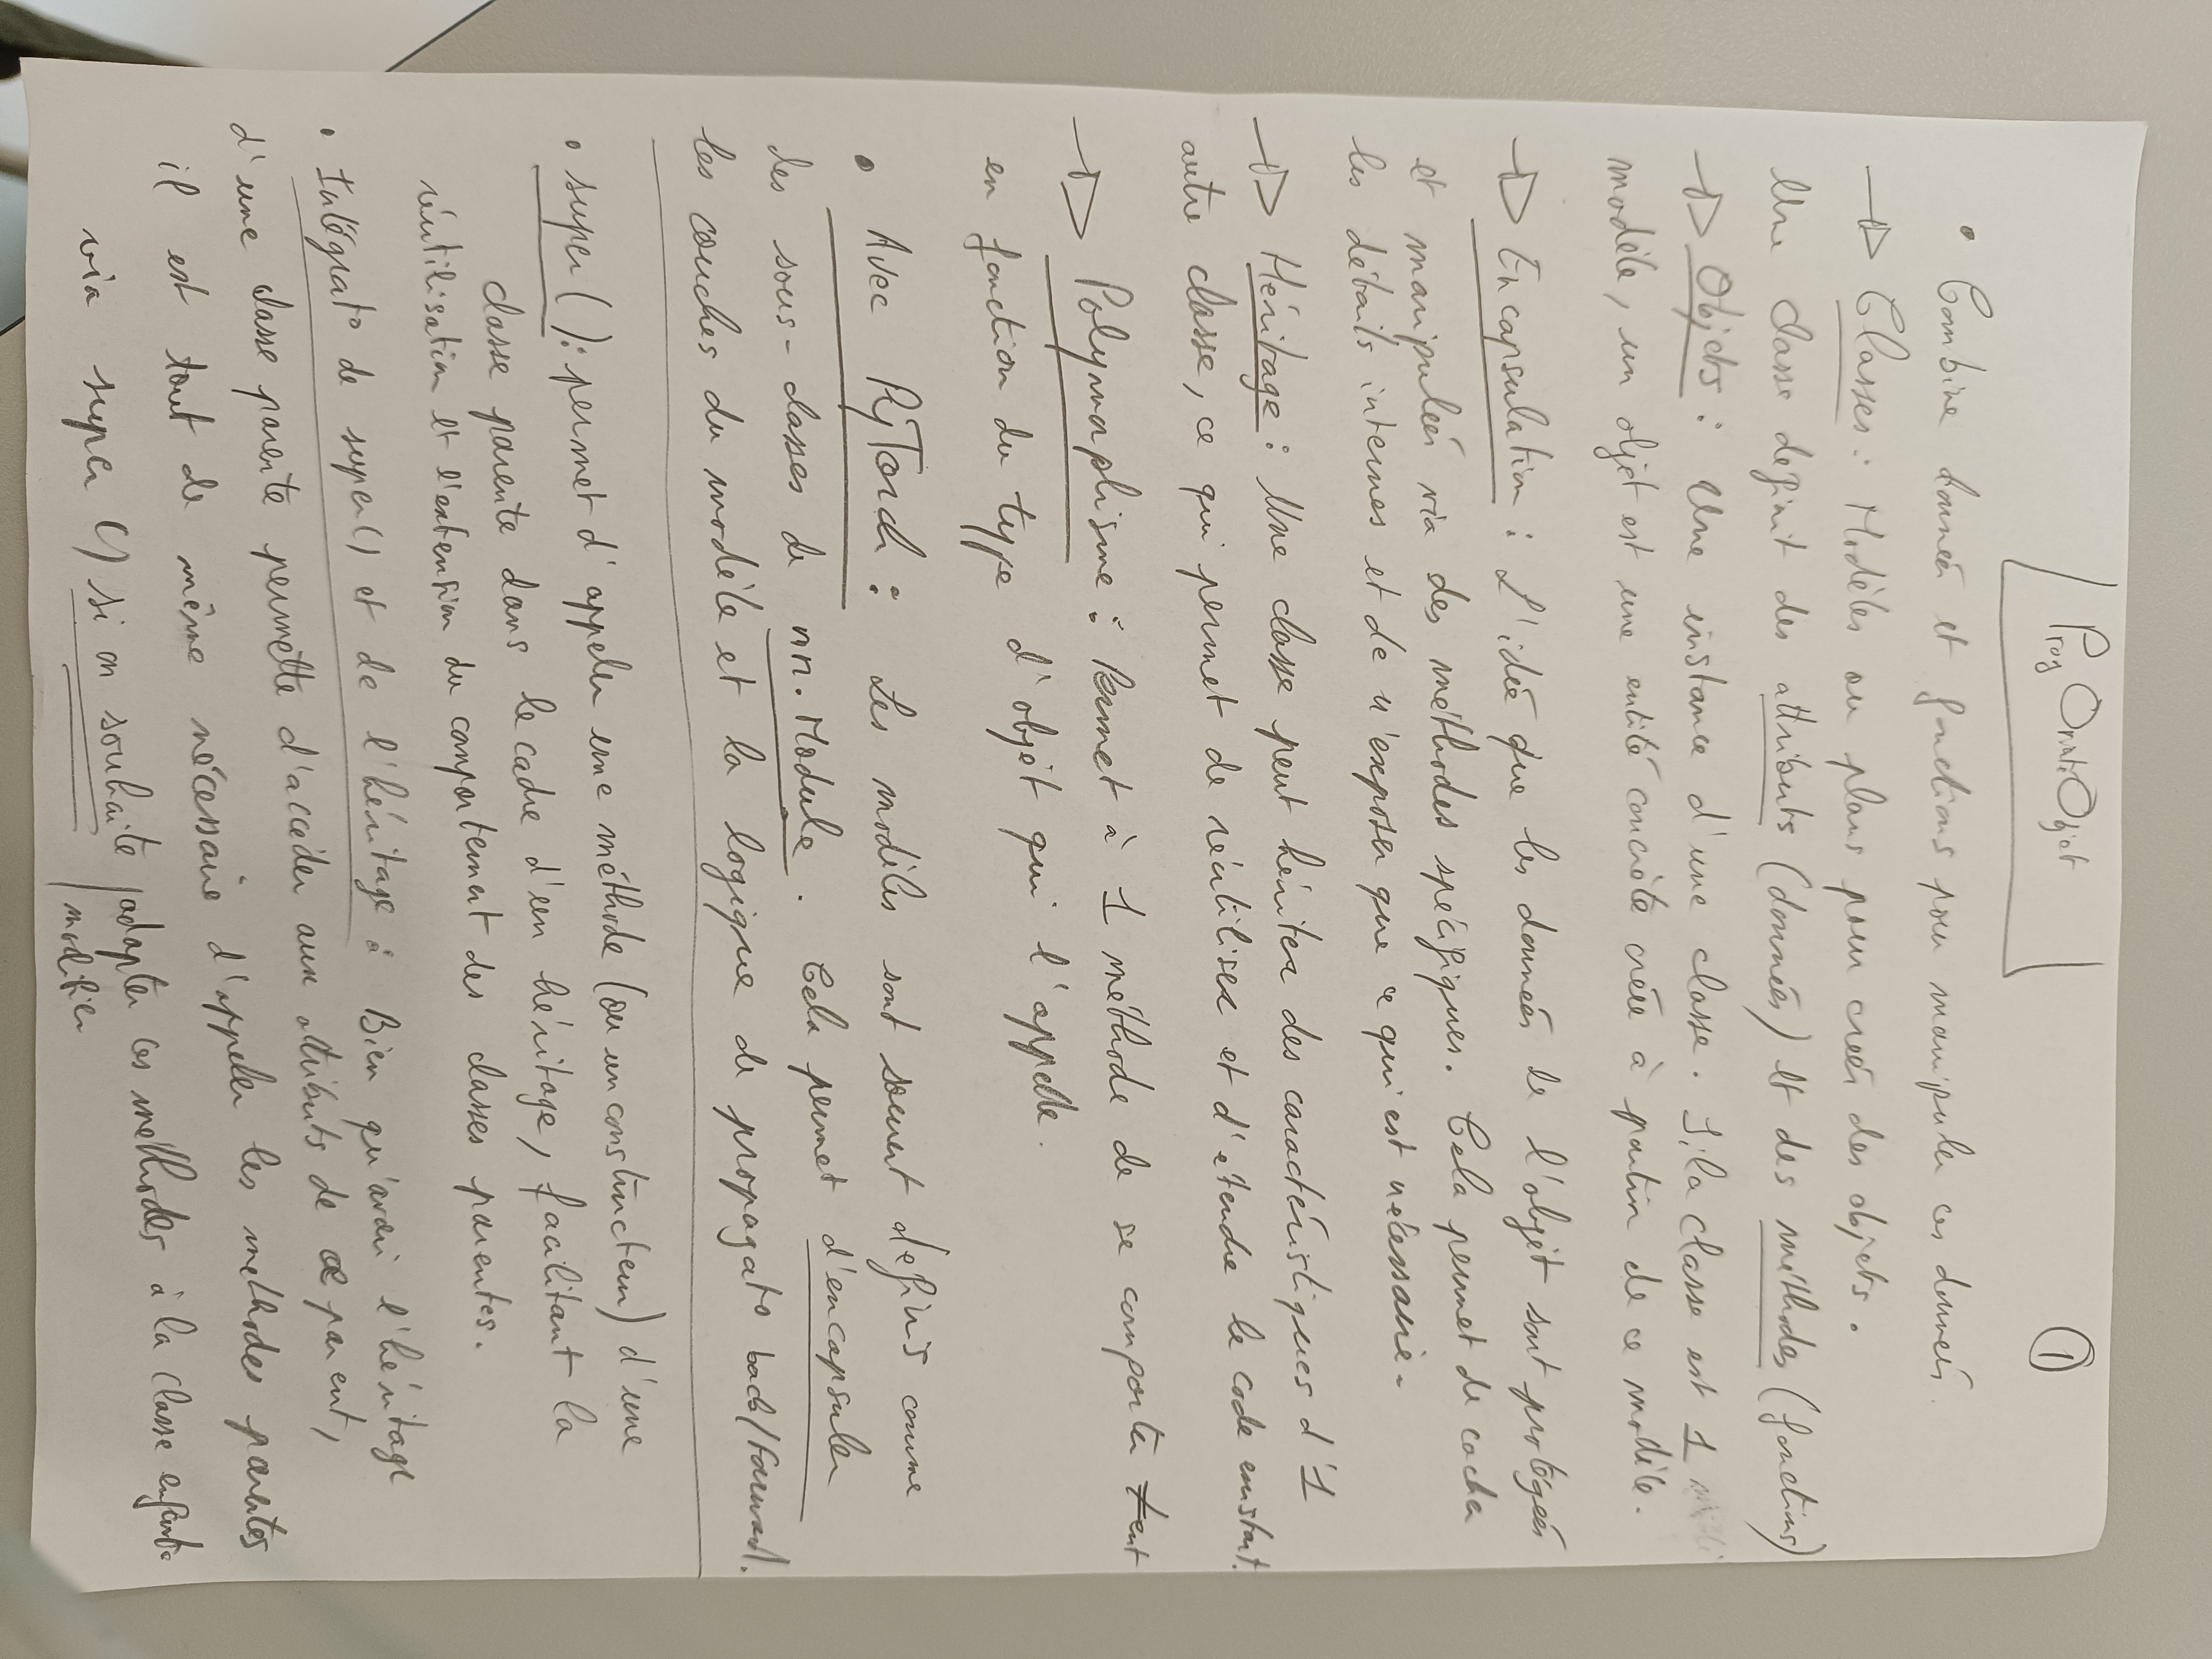 Prog Orienté Objet
①
• Combine données et fonctions pour manipuler ces données.
→ Classes : Modèles ou plans pour créer des objets.
Une classe definit des attributs (données) et des méthodes (fonctions)
→ Objets : Une instance d'une classe. Si la classe est 1
modèle, un objet est une entité concrète créée à partir de ce modèle.
→ Encapsulation : L'idée que les données de l'objet sont protégées
et manipulées via des méthodes spécifiques. Cela permet de cacher
les détails internes et de n'exposer que ce qui est nécessaire.
→ Héritage : Une classe peut hériter des caractéristiques d'1
autre classe, ce qui permet de réutiliser et d'étendre le code existant.
→ Polymorphisme : Permet à 1 méthode de se comporter ≠ent
en fonction du type d'objet qui l'appelle.
• Avec PyTorch : Les modèles sont souvent definis comme
des sous-classes de nn.Module. Cela permet d'encapsuler
les couches du modèle et la logique de propagat° back/forward.
• super( ): permet d'appeler une méthode (ou un constructeur) d'une
classe parente dans le cadre d'un héritage, facilitant la
réutilisation et l'extension du comportement des classes parentes.
• Intégrat° de super() et de l'héritage : Bien qu'avoir l'héritage
d'une classe parente permette d'accéder aux attributs de ce parent,
il est tout de même nécessaire d'appeler les methodes parentes
via super () si on souhaite adapter ces méthodes à la classe enfant.
modifier